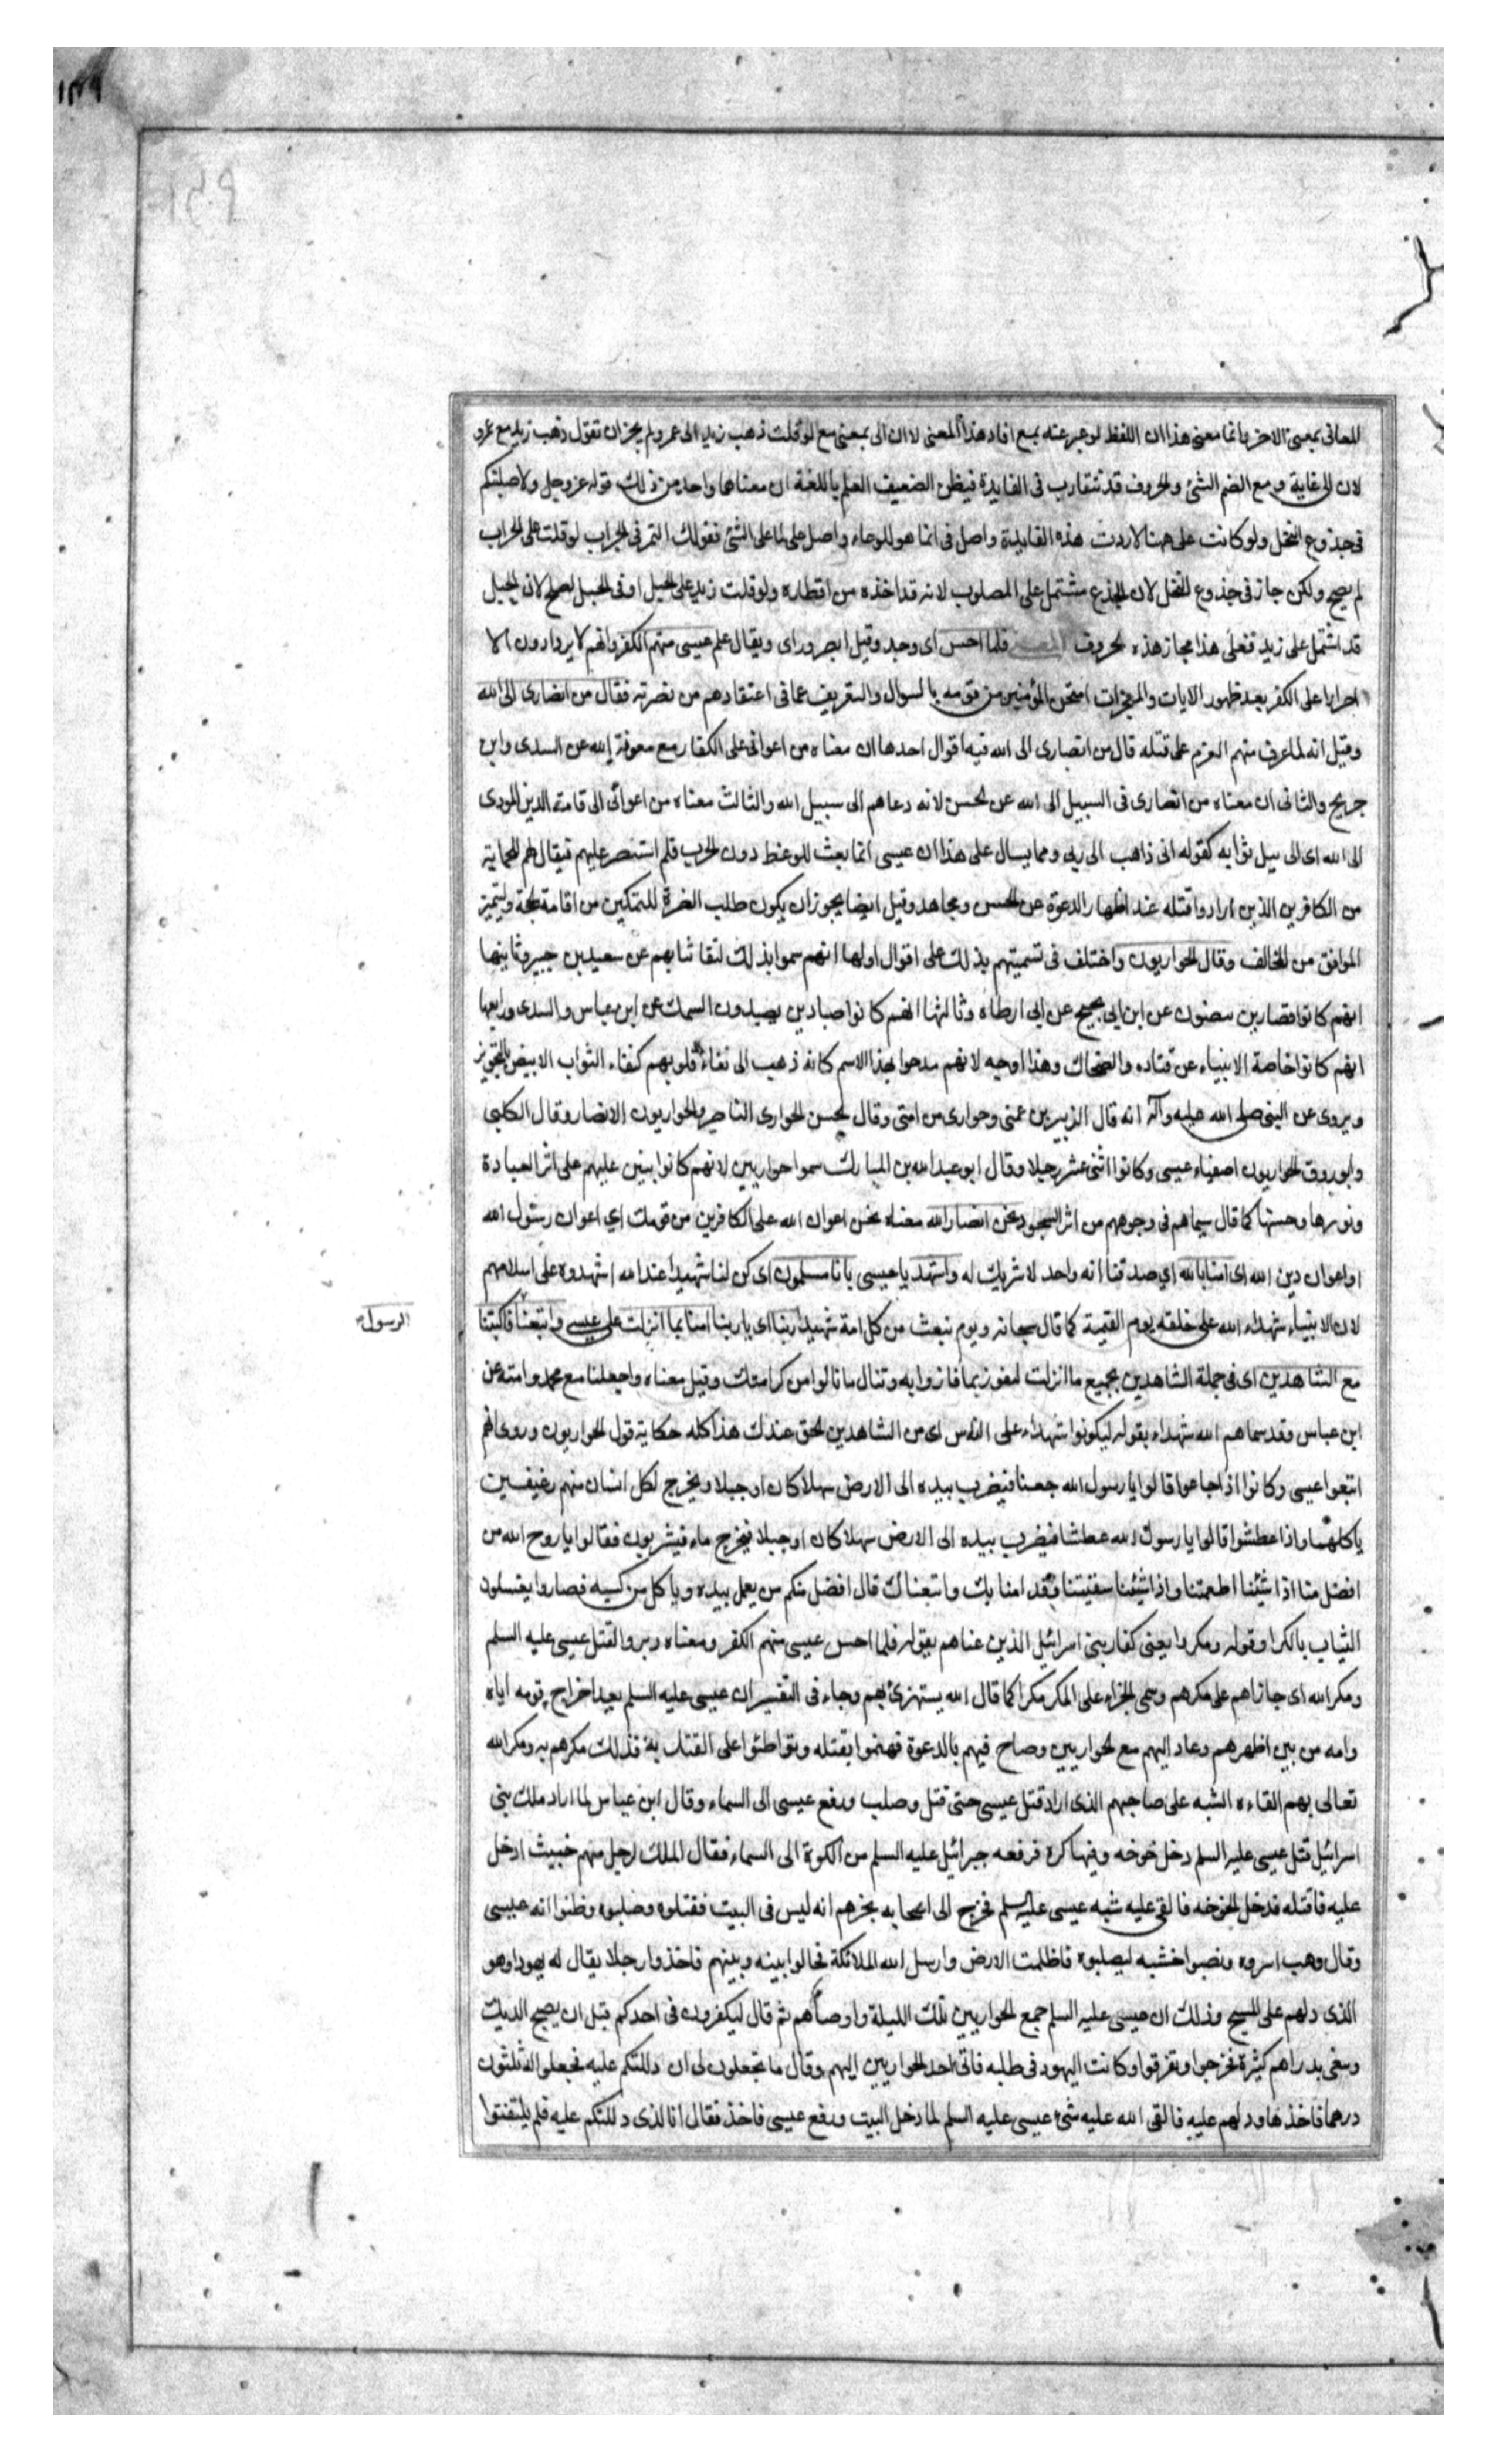 للمعانى بمعنى الاخر فانما معنى هذا ان اللفظ لو عبر عنه بمع افاد هذا المعنى لا ان الى بمعنى مع لو قلت ذهب زيد الى عمرو لم يجز ان تقول ذهب زيد مع عمرو
لان الى غاية و مع الضم الشئ والحروف قد تتقارب فى الفايدة فيظن الضعيف العلم باللغة ان معناهما واحد من ذلك قوله عز وجل ولاصلبنكم
فى جذوع النخل ولو كانت على هنا لادت هذه الفايدة واصل فى انما هو للوعاء واصل على لما على الشئ فقولك التمر فى الجراب لو قلت على الجراب
لم يصح ولكن جاز فى جذوع النخل لان الجذع مشتمل على المصلوب لانه قد اخذه من اقطاره ولو قلت زيد على الجبل او فى الجبل لصح لان الجبل
قد اشتمل على زيد فعلى هذا مجاز هذه الحروف فلما احس اى وجد وقيل ابصر وراى ويقال علم عيسى منهم الكفر وانهم لا يزدادون الا
اصرارا على الكفر بعد ظهور الايات والمعجزات امتحن المؤمنين من قومه بالسوال والتعريف عما فى اعتقادهم من نصرته فقال من انصارى الى الله
وقيل انه لما عرف منهم العزم على قتله قال من انصارى الى الله فيه اقوال احدها ان معناه من اعوانى على الكفار مع معونة الله عن السدى وابن
جريج والثانى ان معناه من انصارى فى السبيل الى الله عن الحسن لانه دعاهم الى سبيل الله والثالث معناه من اعوانى الى قامة الدين المودى
الى الله اى الى نيل ثوابه كقوله انى ذاهب الى ربى ومما يسال على هذا ان عيسى انما بعث للوعظ دون الحرب فلم استنصر عليهم فيقال لهم للحماية
من الكافرين الذين ارادوا قتله عند اظهار الدعوة عن الحسن ومجاهد وقيل ايضا يجوز ان يكون طلب النصرة للتمكين من اقامة الحجة وليتميز
الموافق من المخالف وقال الحواريون واختلف فى تسميتهم بذلك على اقوال اولها انهم سموا بذلك لنقا ثيابهم عن سعيد بن جبير وثانيها
انهم كانوا قصارين يبيضون عن ابن ابى نجيح عن ابى ارطاه وثالثها انهم كانوا صيادين يصيدون السمك عن ابن عباس والسدى ورابعها
انهم كانوا خاصة الانبياء عن قتاده والضحاك وهذا اوجه لانهم مدحوا بهذا الاسم كانه ذهب الى نقاء قلوبهم كنقاء الثواب الابيض بالتحوير
ويروى عن النبى صلى الله عليه وآله انه قال الزبير بن عمتى وحوارى من امتى وقال الحسن الحوارى الناصر والحواريون الانصار وقال الكلبى
وابو روق الحواريون اصفياء عيسى وكانوا اثنى عشر رجلا وقال ابو عبد الله بن المبارك سموا حواريين لانهم كانوا يبين عليهم على اثر العبادة
ونورها وحسنها كما قال سيماهم فى وجوههم من اثر السجود نحن انصار الله معناه نحن اعوان الله على الكافرين من قومك اي اعوان رسول الله
او اعوان دين الله اى امنا بالله اي صدقنا انه واحد لا شريك له واشهد يا عيسى بانا مسلمون اى كن لنا شهيدا عند الله اشهدوه على اسلامهم
لان الانبياء شهداء الله على خلقه يوم القيمة كما قال سبحانه ويوم نبعث من كل امة شهيدا ربنا اى يا ربنا امنا بما انزلت على عيسى واتبعنا فاكتبنا
الرسول
مع الشاهدين اى فى جملة الشاهدين بجميع ما انزلت لنفوز بما فازوا به وتنال ما نالوا من كرامتك وقيل معناه واجعلنا مع محمد وامته عن
ابن عباس وقد سماهم الله شهداء بقوله ليكونوا شهداء على الناس اى من الشاهدين لحق عندك هذا كله حكاية قول الحواريون وروى انهم
اتبعوا عيسى وكانوا اذا جاعوا قالوا يا رسول الله جعنا فيضرب بيده الى الارض سهلا كان او جبلا ويخرج لكل انسان منهم رغيفين
ياكلهما واذا عطشوا قالوا يا رسول الله عطشنا فيضرب بيده الى الارض سهلا كان او جبلا فيخرج ماء فيشربون فقالوا يا روح الله من
افضل منا اذا شئنا اطعمتنا واذا شئنا سقيتنا وقد امنا بك واتبعناك قال افضل منكم من يعمل بيده وياكل من كسبه فصاروا يغسلون
الثياب بالكرا وقوله ومكروا يعنى كفار بنى اسرائيل الذين عناهم بقوله فلما احس عيسى منهم الكفر ومعناه دبروا لقتل عيسى عليه السلم
ومكر الله اى جازاهم على مكرهم وسمى الجزاء على المكر مكرا كما قال الله يستهزئ بهم وجاء فى التفسير ان عيسى عليه السلم بعد اخراج قومه اياه
وامه من بين اظهرهم وعاد اليهم مع الحواريين وصاح فيهم بالدعوة فهموا بقتله وتواطئوا على القتل به فذلك مكرهم به ومكر الله
تعالى بهم القاءه الشبه على صاحبهم الذى اراد قتل عيسى حتى قتل وصلب ورفع عيسى الى السماء وقال ابن عباس لما اراد ملك بنى
اسرائيل قتل عيسى عليه السلم دخل خوخه وفيها كره فرفعه جبرائيل عليه السلم من الكوة الى السماء فقال الملك لرجل منهم خبيث ادخل
عليه فاقتله فدخل الخوخه فالقى عليه شبه عيسى عليه السلم فخرج الى اصحابه يخبرهم انه ليس فى البيت فقتلوه وصلبوه وظنوا انه عيسى
وقال وهب اسروه ونصبوا خشبه ليصلبوه فاظلمت الارض وارسل الله الملائكة فحالوا بينه وبينهم فاخذوا رجلا يقال له يهودا وهو
الذى دلهم على المسيح وذلك ان عيسى عليه السلم جمع الحواريين تلك الليلة واوصاهم ثم قال ليكفرون فى احدكم قبل ان يصيح الديك
وسغى بدراهم كثيرة فخرجوا وتفرقوا وكانت اليهود فى طلبه فاتى احد الحواريين اليهم وقال ما تجعلون لى ان دللتكم عليه فجعلوا له ثلثون
درهما فاخذها ودلهم عليه فالقى الله عليه شئ عيسى عليه السلم لما دخل البيت ورفع عيسى فاخذ فقال انا الذى دللتكم عليه فلم يلتفتوا